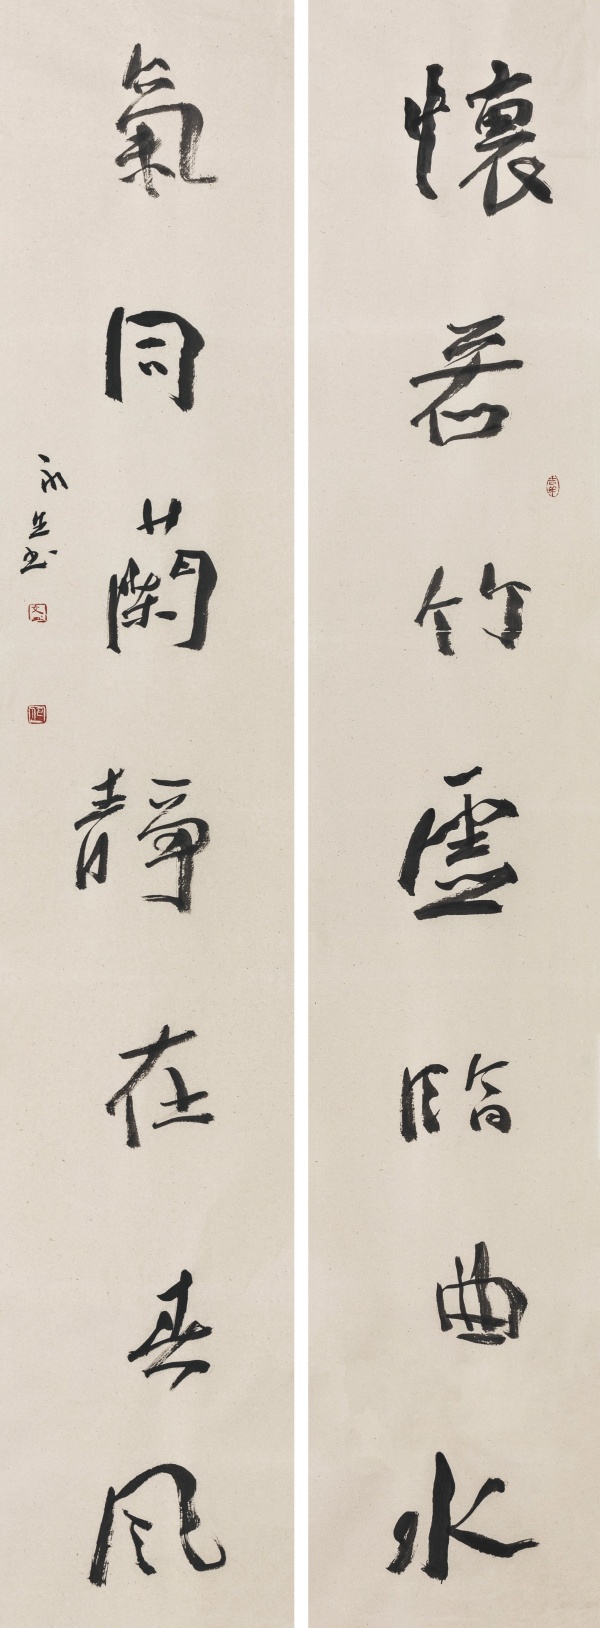 懷若竹虛臨曲水
氣同蘭靜在春風